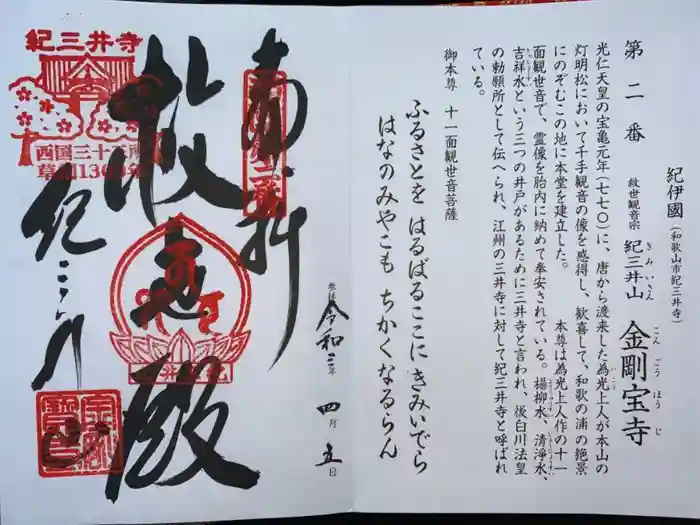 紀伊國(和歌山市紀三井寺)
第二番 救世観音宗 紀三井山 金剛宝寺
きみいさん こんごうほうじ
光仁天皇の宝亀元年(七七〇)に、唐から渡来した為光上人が本山の
灯明松において千手観音の像を感得し、歓喜して、和歌の浦の絶景
にのぞむこの地に本堂を建立した。 本尊は為光上人作の十一
面観世音で、霊像を胎内に納めて奉安されている。楊柳水、清浄水、
吉祥水という三つの井戸があるために三井寺と言われ、後白川法皇
の勅願所として伝へられ、江州の三井寺に対して紀三井寺と呼ばれ
ている。
御本尊 十一面観世音菩薩
ふるさとを はるばるここにきみいでら
はなのみやこも ちかくなるらん
奉拝
令和三年 四月 五日
救世殿
紀三井寺
紀三井寺
西国三十三所
草創1300年